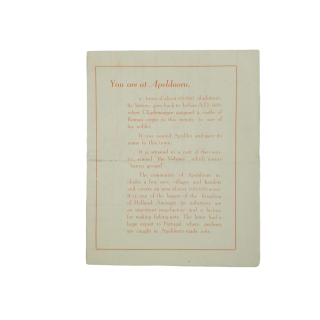 You are at Apeldoorn,
a town of about
its history goes back to before A.D.
when Charlemagne assigned a castle of
Roman origin in this vicinity to one of
his nobles.
It was named Apoldro and gave its
name to this town.
It is situated in a part of the coun-
try, named "the Veluwe", which means
The community of Apeldoorn in-
cludes a few more villages and hamlets
and covers an area of about
It is one of the largest of the Kingdom
of Holland. Amongst its industries are
an important manufacture and a factory
for making fishing nets. The latter had a
large export to Portugal, where sardines
are caught in Apeldoorn-made nets.